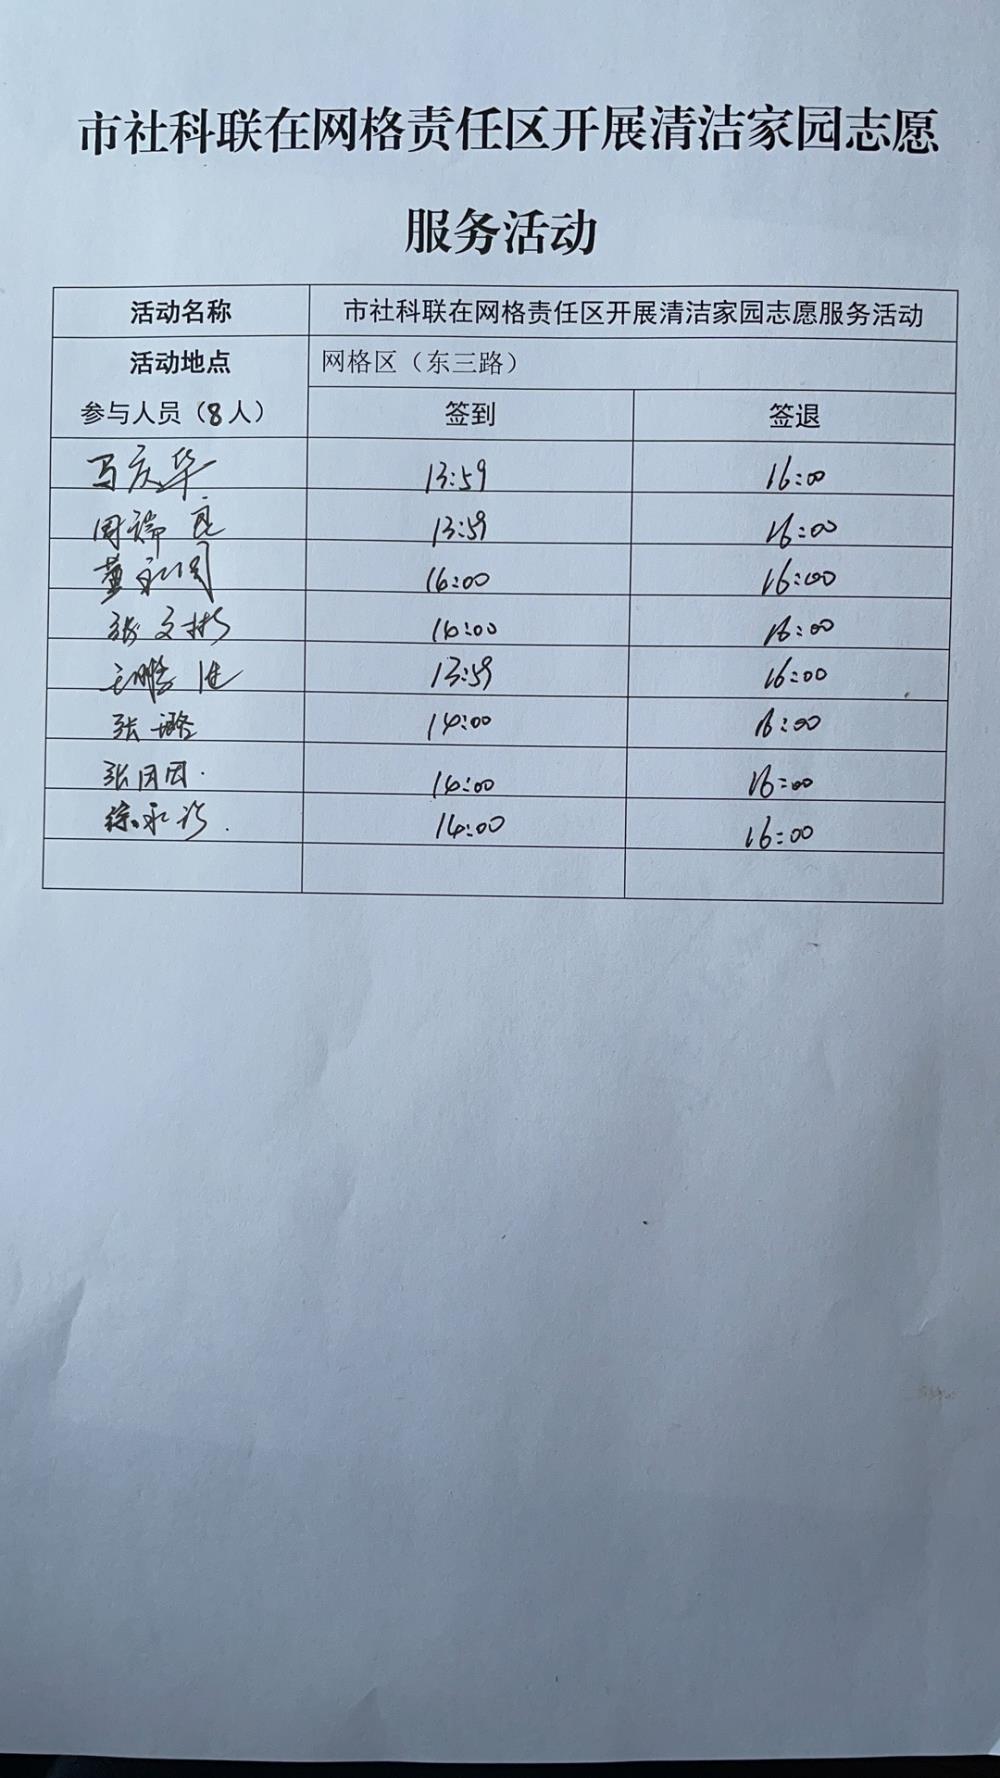 市社科联在网格责任区开展清洁家园志愿
服务活动
活动名称 市社科联在网格责任区开展清洁家园志愿服务活动
活动地点 网格区（东三路）
参与人员（8人） 签到 签退
马庆华 13:59 16:00
周瑞 13:59 16:00
董 14:00 16:00
张文彬 14:00 16:00
王鹏 13:59 16:00
张璐 14:00 16:00
张团团. 14:00 16:00
徐永 14:00 16:00